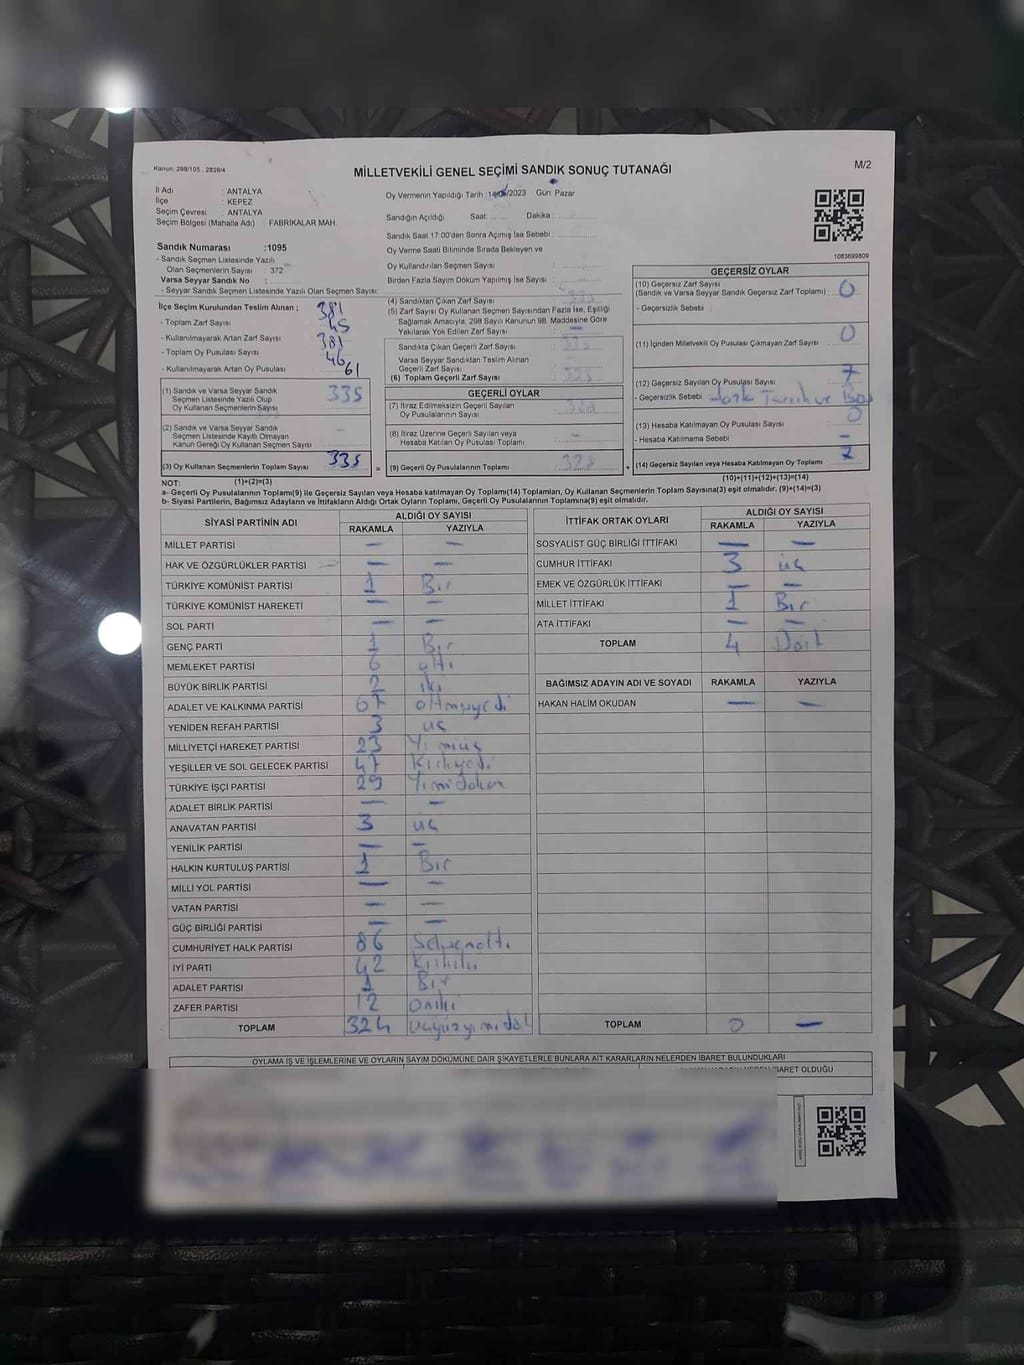 Kanun: 298/105 , 2839/4
MİLLETVEKİLİ GENEL SEÇİMİ SANDIK SONUÇ TUTANAĞI
M/2
İl Adı : ANTALYA
İlçe : KEPEZ
Seçim Çevresi : ANTALYA
Seçim Bölgesi (Mahalle Adı) : FABRİKALAR MAH.
Sandık Numarası :1095
- Sandık Seçmen Listesinde Yazılı
Olan Seçmenlerin Sayısı : 372
Varsa Seyyar Sandık No :
- Seyyar Sandık Seçmen Listesinde Yazılı Olan Seçmen Sayısı:
Oy Vermenin Yapıldığı Tarih :14/05/2023 Gün: Pazar
Sandığın Açıldığı Saat: Dakika :
Sandık Saat 17:00'den Sonra Açılmış İse Sebebi :
Oy Verme Saati Bitiminde Sırada Bekleyen ve
Oy Kullandırılan Seçmen Sayısı :
Birden Fazla Sayım Dökum Yapılmış İse Sayısı :
1083699809
İlçe Seçim Kurulundan Teslim Alınan ;
- Toplam Zarf Sayısı : 381
- Kullanılmayarak Artan Zarf Sayısı : 45
- Toplam Oy Pusulası Sayısı : 381
- Kullanılmayarak Artan Oy Pusulası : 46
(1) Sandık ve Varsa Seyyar Sandık
Seçmen Listesinde Yazılı Olup
Oy Kullanan Seçmenlerin Sayısı 335
(2) Sandık ve Varsa Seyyar Sandık
Seçmen Listesinde Kayıtlı Olmayan
Kanun Gereği Oy Kullanan Seçmen Sayısı : -
(3) Oy Kullanan Seçmenlerin Toplam Sayısı : 335
(1)+(2)=(3)
(4) Sandıktan Çıkan Zarf Sayısı : 335
(5) Zarf Sayısı Oy Kullanan Seçmen Sayısından Fazla İse, Eşitliği
Sağlamak Amacıyla, 298 Sayılı Kanunun 98. Maddesine Göre
Yakılarak Yok Edilen Zarf Sayısı : -
Sandıkta Çıkan Geçerli Zarf Sayısı : 335
Varsa Seyyar Sandıktan Teslim Alınan
Geçerli Zarf Sayısı : -
(6) Toplam Geçerli Zarf Sayısı : 335
GEÇERLİ OYLAR
(7) İtiraz Edilmeksizin Geçerli Sayılan
Oy Pusulalarının Sayısı : 328
(8) İtiraz Üzerine Geçerli Sayılan veya
Hesaba Katılan Oy Pusulası Toplamı : -
= (9) Geçerli Oy Pusulalarının Toplamı : 328 +
GEÇERSİZ OYLAR
(10) Geçersiz Zarf Sayısı
(Sandık ve Varsa Seyyar Sandık Geçersiz Zarf Toplamı) : 0
- Geçersizlik Sebebi :
(11) İçinden Milletvekili Oy Pusulası Çıkmayan Zarf Sayısı : 0
(12) Geçersiz Sayılan Oy Pusulası Sayısı : 7
- Geçersizlik Sebebi :
(13) Hesaba Katılmayan Oy Pusulası Sayısı : 0
- Hesaba Katılmama Sebebi : -
(14) Geçersiz Sayılan veya Hesaba Katılmayan Oy Toplamı : 7
(10)+(11)+(12)+(13)=(14)
NOT:
a- Geçerli Oy Pusulaları Toplamı(9) ile Geçersiz Sayılan veya Hesaba katılmayan Oy Toplam(14) Toplamları, Oy Kullanan Seçmenlerin Toplam Sayısına(3) eşit olmalıdır. (9)+(14)=(3)
b- Siyasi Partilerin, Bağımsız Adayların ve İttifakların Aldığı Ortak Oyların Toplamı, Geçerli Oy Pusulalarının Toplamına(9) eşit olmalıdır.
SİYASİ PARTİNİN ADI ALDIĞI OY SAYISI
RAKAMLA YAZIYLA
MİLLET PARTİSİ - -
HAK VE ÖZGÜRLÜKLER PARTİSİ - -
TÜRKİYE KOMÜNİST PARTİSİ 1 Bir
TÜRKİYE KOMÜNİST HAREKETİ - -
SOL PARTİ - -
GENÇ PARTİ 1 Bir
MEMLEKET PARTİSİ 6 altı
BÜYÜK BİRLİK PARTİSİ 2 iki
ADALET VE KALKINMA PARTİSİ 67 altmışyedi
YENİDEN REFAH PARTİSİ 3 üç
MİLLİYETÇİ HAREKET PARTİSİ 23
YEŞİLLER VE SOL GELECEK PARTİSİ 47 Kırkyedi
TÜRKİYE İŞÇİ PARTİSİ 29
ADALET BİRLİK PARTİSİ - -
ANAVATAN PARTİSİ 3 üç
YENİLİK PARTİSİ - -
HALKIN KURTULUŞ PARTİSİ 1 Bir
MİLLİ YOL PARTİSİ - -
VATAN PARTİSİ - -
GÜÇ BİRLİĞİ PARTİSİ - -
CUMHURİYET HALK PARTİSİ 86 Seksenaltı
İYİ PARTİ 42 Kırkiki
ADALET PARTİSİ 1 Bir
ZAFER PARTİSİ 12 oniki
TOPLAM 324
İTTİFAK ORTAK OYLARI ALDIĞI OY SAYISI
RAKAMLA YAZIYLA
SOSYALİST GÜÇ BİRLİĞİ İTTİFAKI - -
CUMHUR İTTİFAKI 3 üç
EMEK VE ÖZGÜRLÜK İTTİFAKI - -
MİLLET İTTİFAKI 1 Bir
ATA İTTİFAKI - -
TOPLAM 4 Dört
BAĞIMSIZ ADAYIN ADI VE SOYADI RAKAMLA YAZIYLA
HAKAN HALİM OKUDAN - -
TOPLAM 0 -
OYLAMA İŞ VE İŞLEMLERİNE VE OYLARIN SAYIM DÖKÜMÜNE DAİR ŞİKAYETLERLE BUNLARA AİT KARARLARIN NELERDEN İBARET BULUNDUKLARI